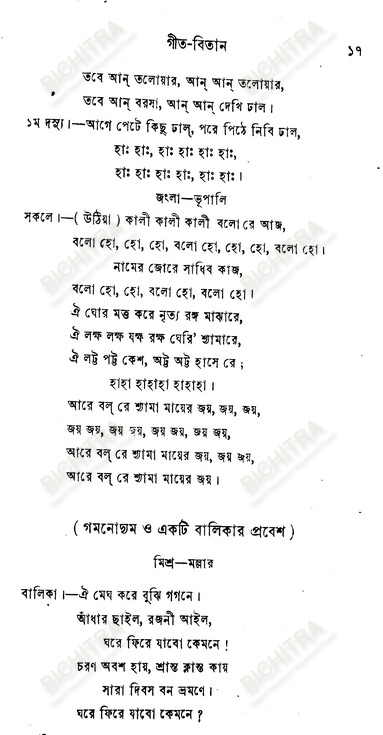 গীত-বিতান
১৭
তবে আন্ তলোয়ার, আন্ আন্ তলোয়ার,
তবে আন্ বরসা, আন্ আন্ দেখি ঢাল।
১ম দস্যু।—আগে পেটে কিছু ঢাল্, পরে পিঠে নিবি ঢাল,
হাঃ হাঃ, হাঃ হাঃ হাঃ হাঃ,
হাঃ হাঃ হাঃ হাঃ হাঃ হাঃ।
জংলা—ভূপালি
সকলে।—( উঠিয়া ) কালী কালী কালী বলো রে আজ,
বলো হো, হো, হো, বলো হো, হো, হো, বলো হো।
নামের জোরে সাধিব কাজ,
বলো হো, হো, বলো হো, বলো হো।
ঐ ঘোর মত্ত করে নৃত্য রঙ্গ মাঝারে,
ঐ লক্ষ লক্ষ যক্ষ রক্ষ ঘেরি’ শ্যামারে,
ঐ লট্ট পট্ট কেশ, অট্ট অট্ট হাসে রে ;
হাহা হাহাহা হাহাহা।
আরে বল্ রে শ্যামা মায়ের জয়, জয়, জয়,
জয় জয়, জয় জয়, জয় জয়, জয় জয়,
আরে বল্ রে শ্যামা মায়ের জয়, জয় জয়,
আরে বল্ রে শ্যামা মায়ের জয়।
( গমনোদ্যম ও একটি বালিকার প্রবেশ )
মিশ্র—মল্লার
বালিকা।—ঐ মেঘ করে বুঝি গগনে।
আঁধার ছাইল, রজনী আইল,
ঘরে ফিরে যাবো কেমনে !
চরণ অবশ হায়, শ্রান্ত ক্লান্ত কায়
সারা দিবস বন ভ্রমণে।
ঘরে ফিরে যাবো কেমনে ?
BICHITRA